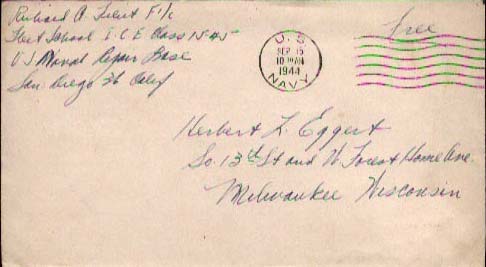 Richard A. F 1/c
School I.C.E. Class 15-45
U S Naval Repair Base
San Diego 36 Calif
U.S.
SEP 15
10 30 AM
1944
NAVY
Free
Herbert L. Eggert
So. 13th St and W. Forest Home Ave.
Milwaukee Wisconsin